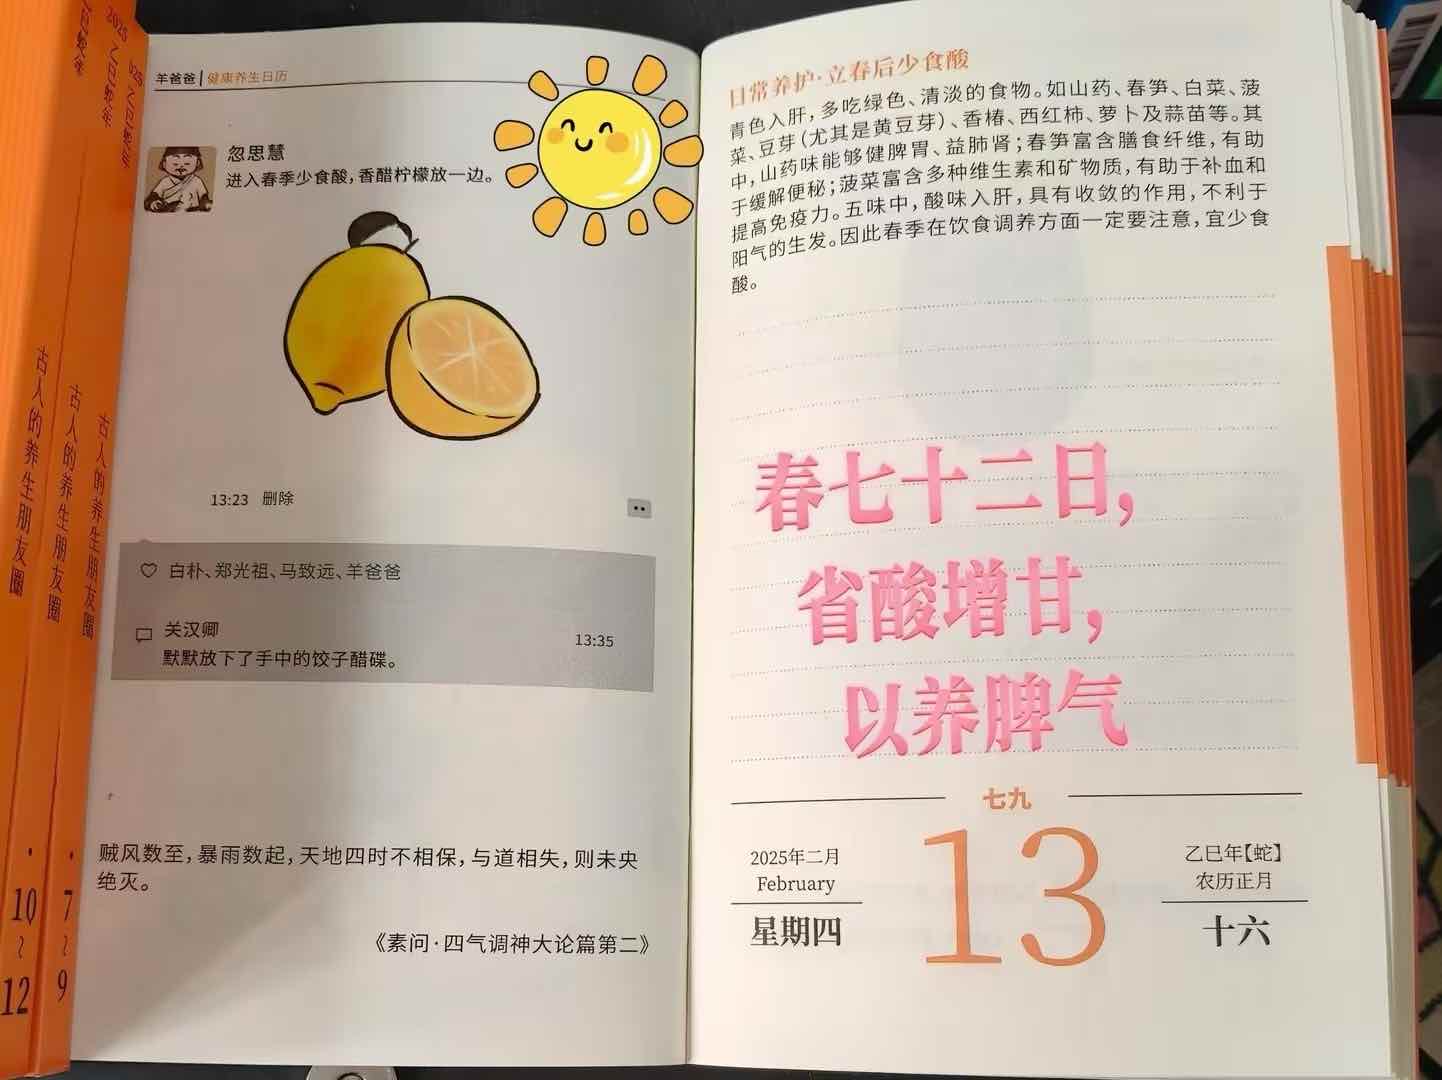 2025 乙巳蛇年
古人的养生朋友圈
10~12
古人的养生朋友圈
7~9
古人的养生朋友圈
羊爸爸|健康养生日历
忽思慧
进入春季少食酸，香醋柠檬放一边。
13:23 删除
白朴、郑光祖、马致远、羊爸爸
关汉卿
13:35
默默放下了手中的饺子醋碟。
贼风数至，暴雨数起，天地四时不相保，与道相失，则未央
绝灭。
《素问·四气调神大论篇第二》
日常养护·立春后少食酸
青色入肝，多吃绿色、清淡的食物。如山药、春笋、白菜、菠
菜、豆芽（尤其是黄豆芽）、香椿、西红柿、萝卜及蒜苗等。其
中，山药味能够健脾胃、益肺肾；春笋富含膳食纤维，有助
于缓解便秘；菠菜富含多种维生素和矿物质，有助于补血和
提高免疫力。五味中，酸味入肝，具有收敛的作用，不利于
阳气的生发。因此春季在饮食调养方面一定要注意，宜少食
酸。
春七十二日，
省酸增甘，
以养脾气
七九
2025年二月
February
星期四
13
乙巳年【蛇】
农历正月
十六